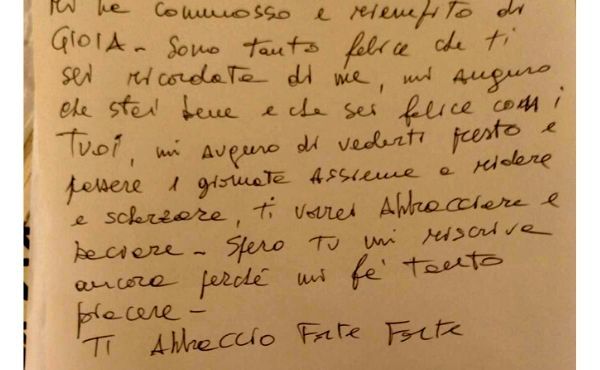 mi ha commosso e riempito di
GIOIA - Sono tanto felice che ti
sei ricordata di me, mi auguro
che stai bene e che sei felice con i
Tuoi, mi auguro di vederti presto e
passare 1 giornata Assieme a ridere
e scherzare, ti vorrei Abbracciare e
baciare - Spero Tu mi riscriva
ancora perché mi fa Tanto
piacere -
TI Abbraccio Forte Forte